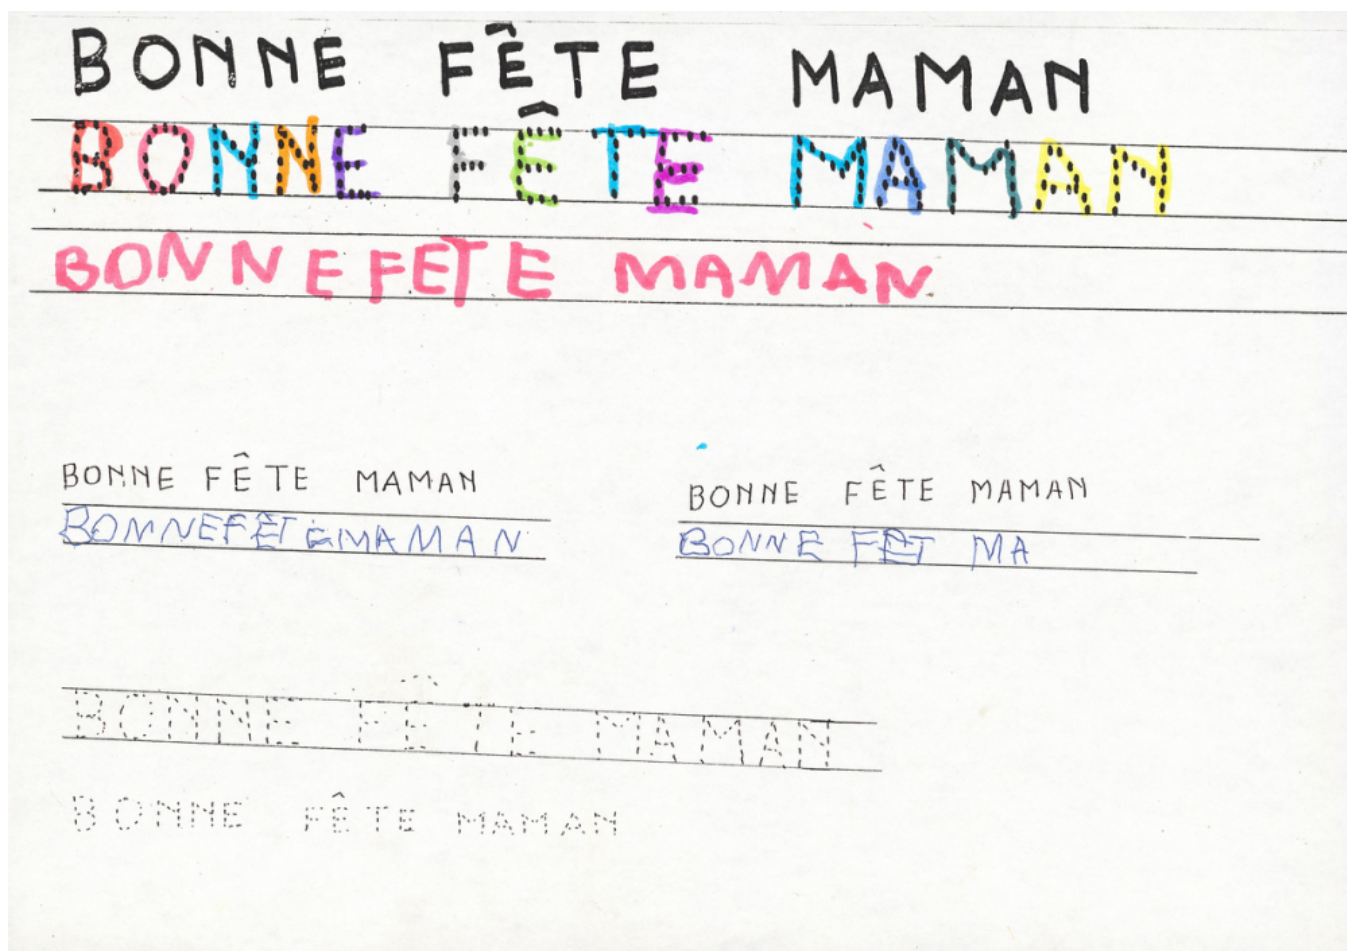 BONNE FÊTE MAMAN
BONNE FÊTE MAMAN
BONNEFETE MAMAN
BONNE FÊTE MAMAN
BONNEFÊTEMAMAN
BONNE FÊTE MAMAN
BONNE FÊT MA
BONNE FÊTE MAMAN
BONNE FÊTE MAMAN